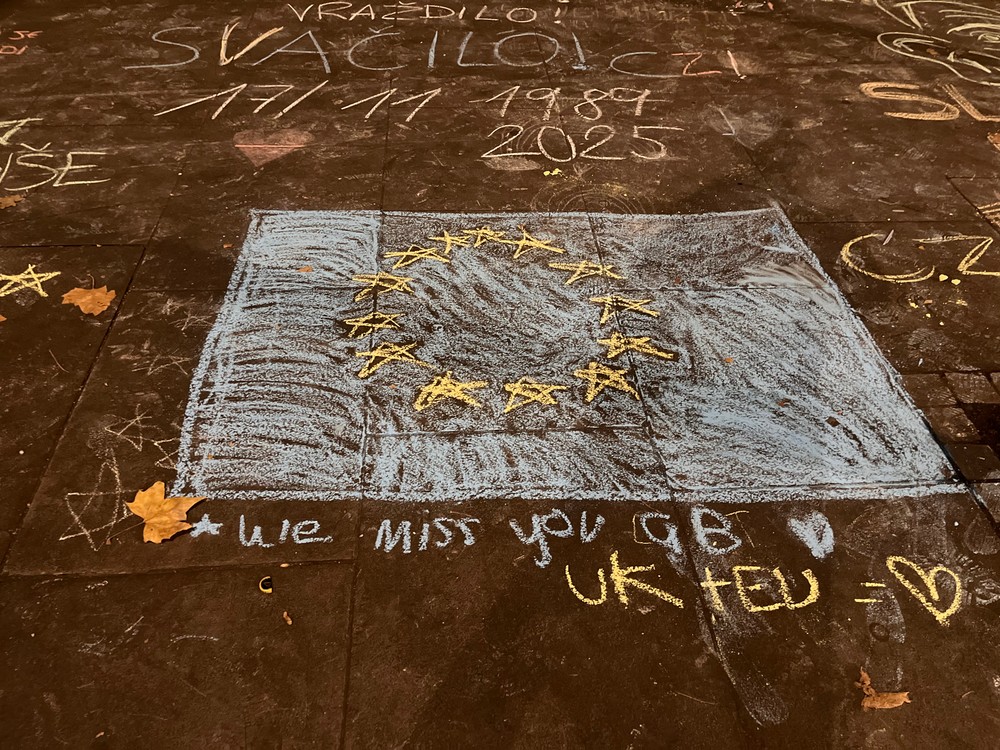 VRAŽDILO!
SVAČILO! CZ!
17/11 1989
2025
CZ
* We miss you GB
UK + EU =